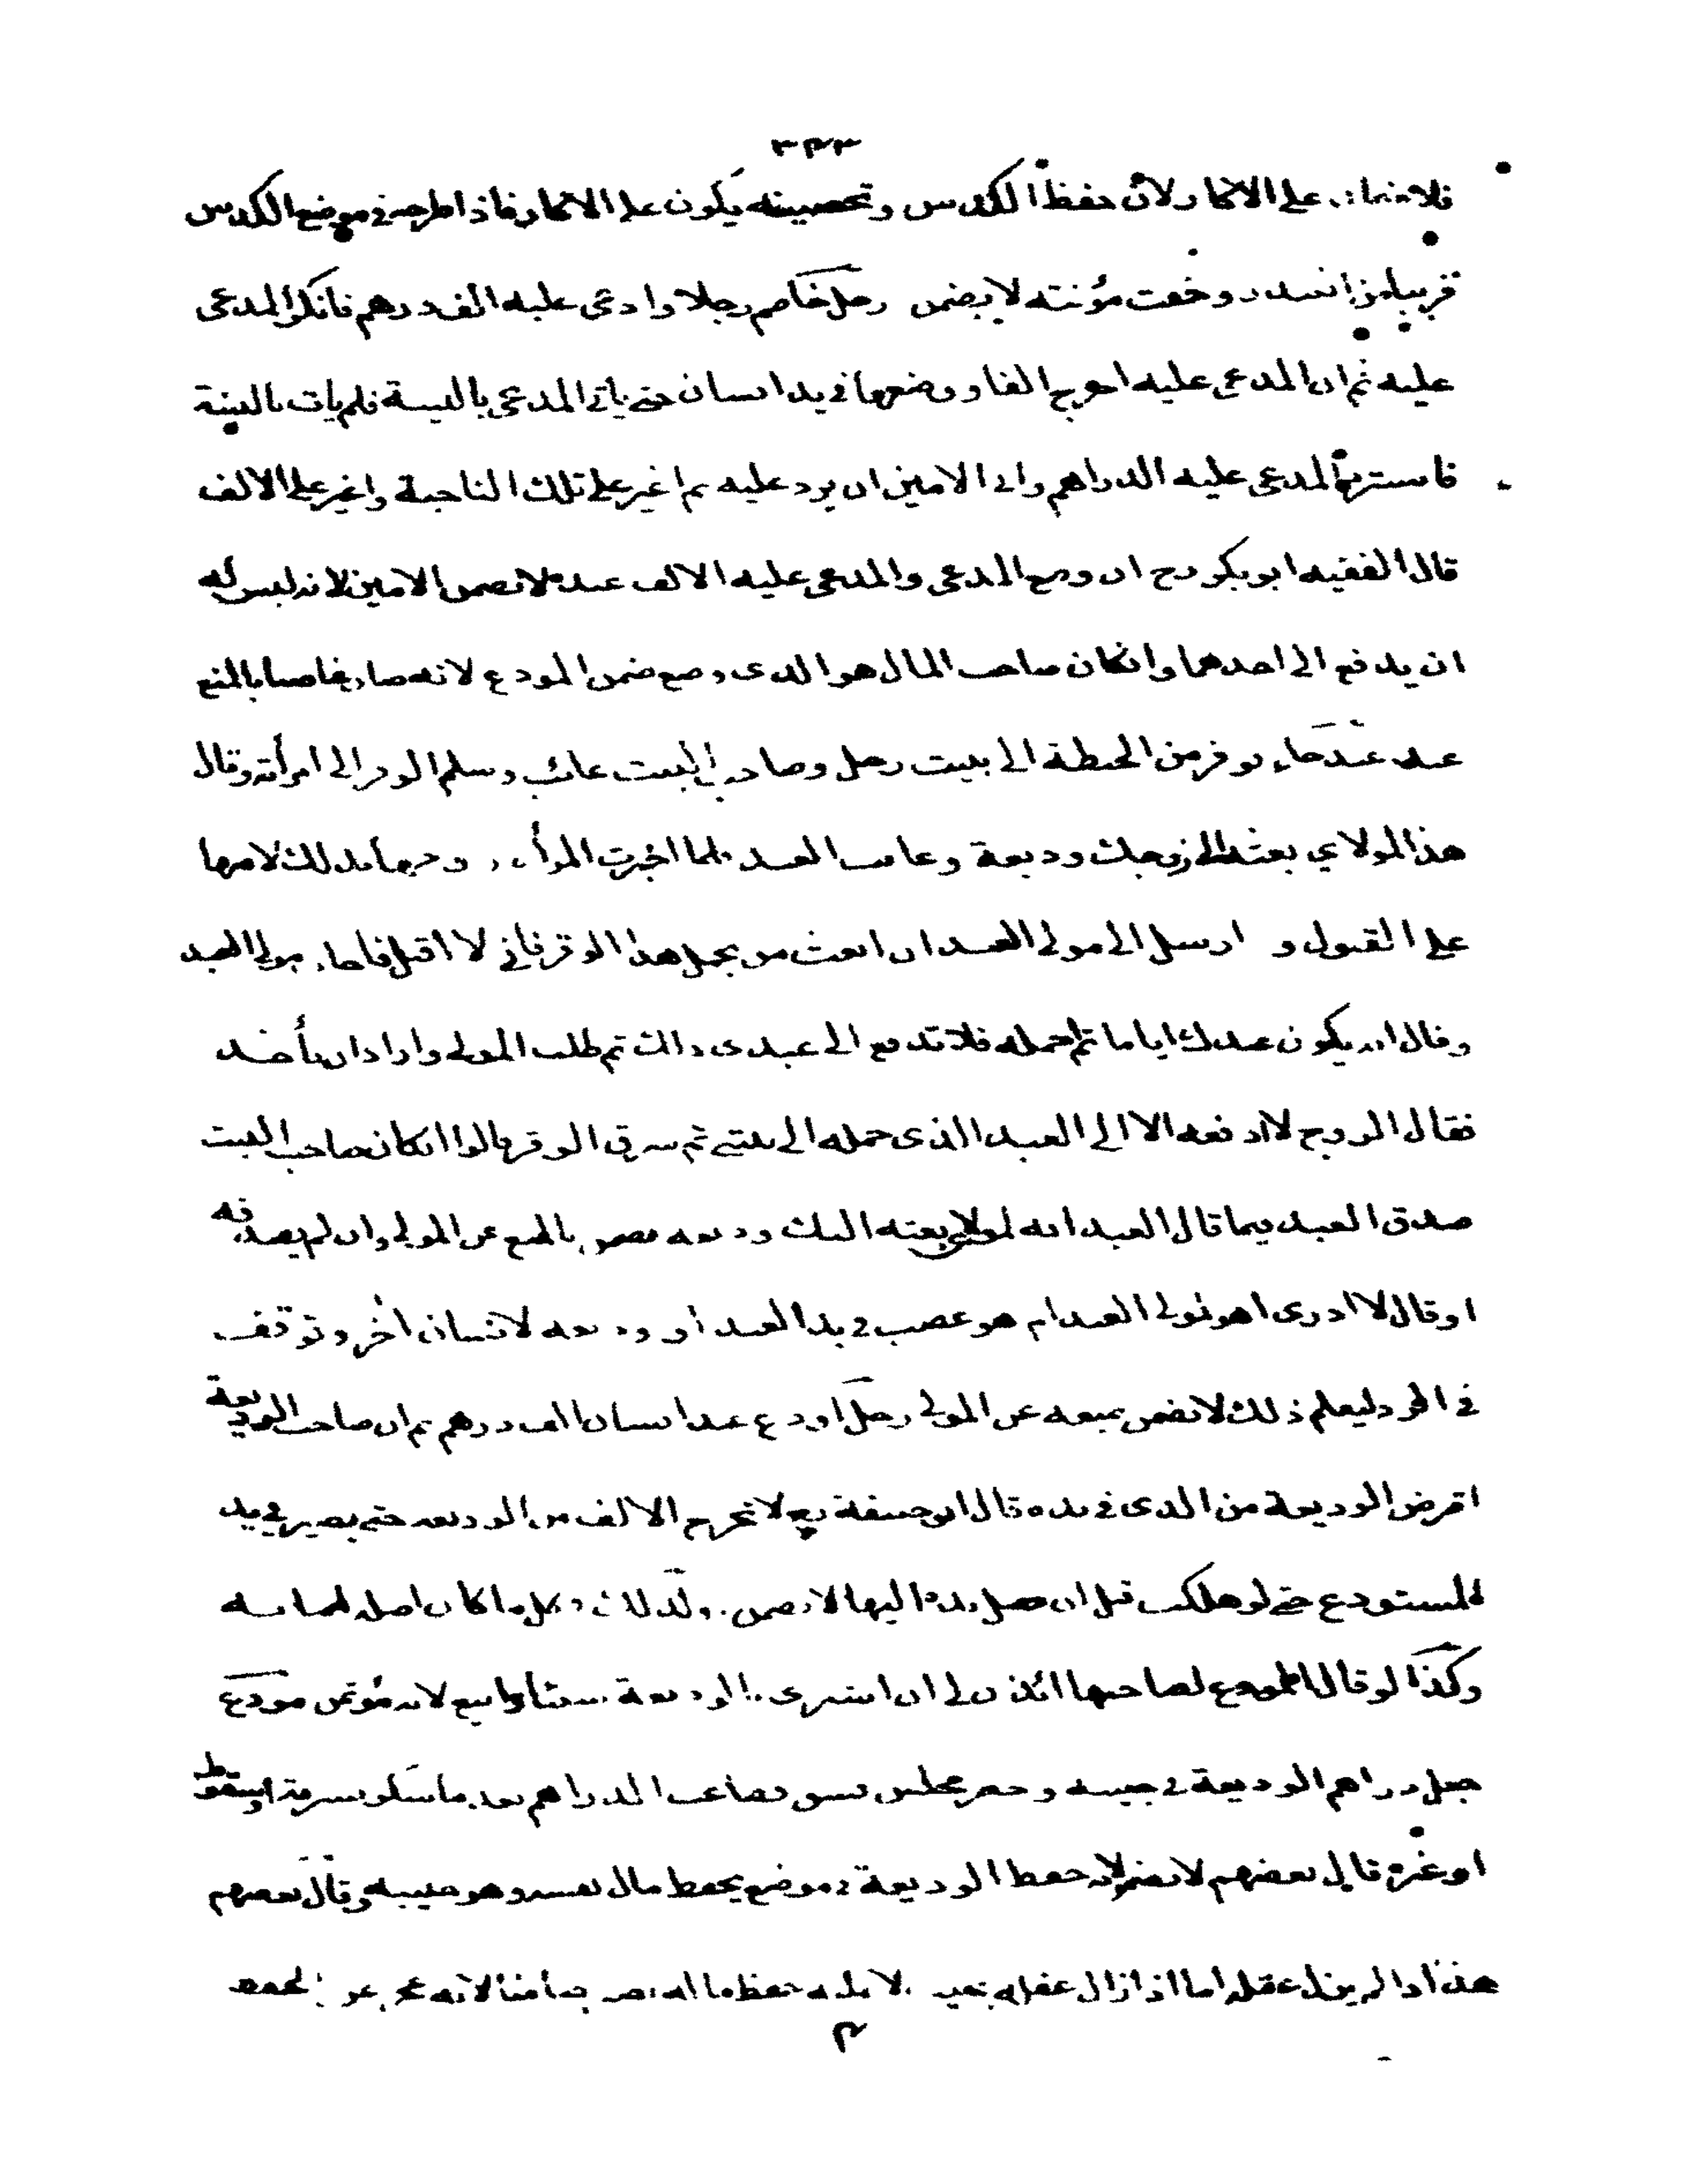 ٣٤٣
فلا ضمان على الاكار ولان حفظ الكدس وتحصينه يكون على الاكار فاذا طرحه في موضع الكدس
قريبا من وخفت مؤنته لا يضمن رجل خاصم رجلا وادعى عليه الف درهم فانكر المدعى
عليه ثم ان المدعى عليه اخرج الفا ووضعها في يد انسان حتى ياتي المدعي بالبينة فلم يات بالبينة
فاسترد المدعى عليه الدراهم وابى الامين ان يرد عليه ثم اغير على تلك الناحية واغير على الالف
قال الفقيه ابو بكر رح ان وضع المدعي والمدعى عليه الالف عنده لا يضمن الامين لانه ليس له
ان يدفع الى احدهما وانكان صاحب المال هو الذى وضع ضمن المودع لانه صار غاصبا بالمنع
عنه عبد جاء بوقر من الحنطة الى بيت رجل وصاحب البيت غائب وسلم الوقر الى امرأته وقال
هذا لمولاي بعثه الى زوجك وديعة وغاب العبد فلما اخبرت المرأة زوجها بذلك لامها
على القبول و ارسل الى مولى العبد ان ابعث من يحمل هذا الوقر فاني لا اقبل فاجاب مولى العبد
وقال انه يكون عندك اياما ثم احمله فلا تدفع الى عبدى ذلك ثم طلب المولى واراد ان يأخذ
فقال الزوج لا ادفعه الا الى العبد الذى حمله الى بيتي ثم سرق الوقر قالوا انكان صاحب البيت
صدق العبد فيما قال العبد انه لمولاي بعثه اليك وديعة يضمن بالمنع عن المولى وان لم يصدقه
او قال لا ادرى اهو لمولى العبد ام هو غصب في يد العبد او وديعة لانسان اخر وتوقف
في الرد ليعلم ذلك لا يضمن بمنعه عن المولى رجل اودع عند انسان الف درهم ثم ان صاحب الوديعة
اقرض الوديعة من الذى في يده قال ابو حنيفة رح لا تخرج الالف من الوديعة حتى يصير في يد
المستودع حتى لو هلكت قبل ان تصل يده اليها لا يضمن وكذلك كل ما كان اصله امانة
وكذا لو قال المودع لصاحبها ائذن لي ان اشترى بالوديعة شيئا وابيع لانه مؤتمن مودع
جعل دراهم الوديعة في جيبه وحضر مجلس فسق فضاعت الدراهم بعد ما سكر بسرقة او سقوط
او غيره قال بعضهم لا يضمن لانه حفظ الوديعة في موضع يحفظ مال نفسه وهو جيبه وقال بعضهم
هذا اذا لم يزل عقله اما اذا زال عقله بحيث لا يمكنه حفظ ماله يصير ضامنا لانه عجز عن الحفظ